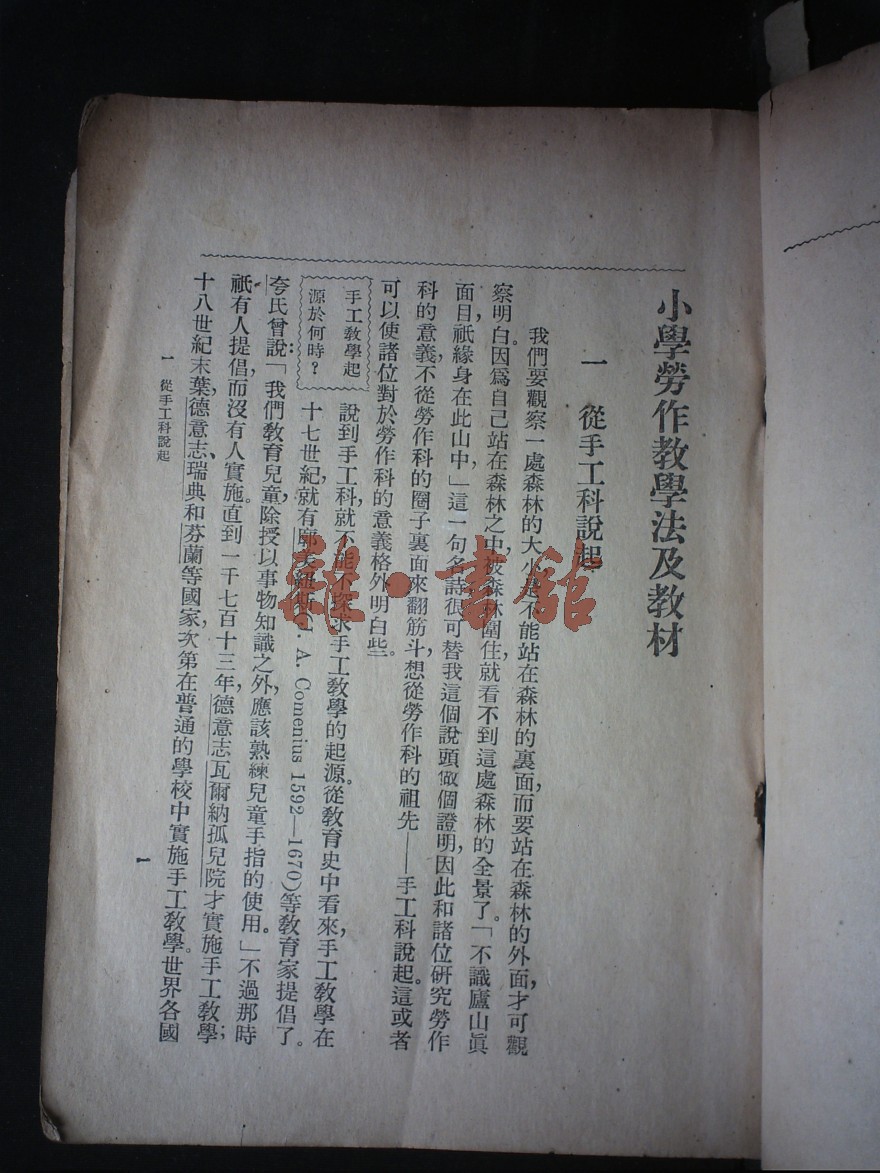 小學勞作教學法及教材
一 從手工科說起
我們要觀察一處森林的大小,是不能站在森林的裏面,而要站在森林的外面,才可觀
察明白。因爲自己站在森林之中,被森林圍住,就看不到這處森林的全景了。「不識廬山眞
面目,祇緣身在此山中」這一句名詩,很可替我這個說頭做個證明,因此和諸位研究勞作
科的意義,不從勞作科的圈子裏面來翻筋斗,想從勞作科的祖先——手工科說起。這或者
可以使諸位對於勞作科的意義格外明白些。
手工敎學起
源於何時?
說到手工科,就不能不探求手工敎學的起源。從敎育史中看來,手工敎學在
十七世紀就有廓美紐斯(J. A. Comenius 1592—1670)等敎育家提倡了。
夸氏曾說:「我們敎育兒童,除授以事物知識之外,應該熟練兒童手指的使用。」不過那時
祇有人提倡,而沒有人實施。直到一千七百十三年,德意志瓦爾納孤兒院才實施手工敎學;
十八世紀末葉,德意志、瑞典和芬蘭等國家,次第在普通的學校中實施手工敎學。世界各國
一 從手工科說起
1
雜·書館